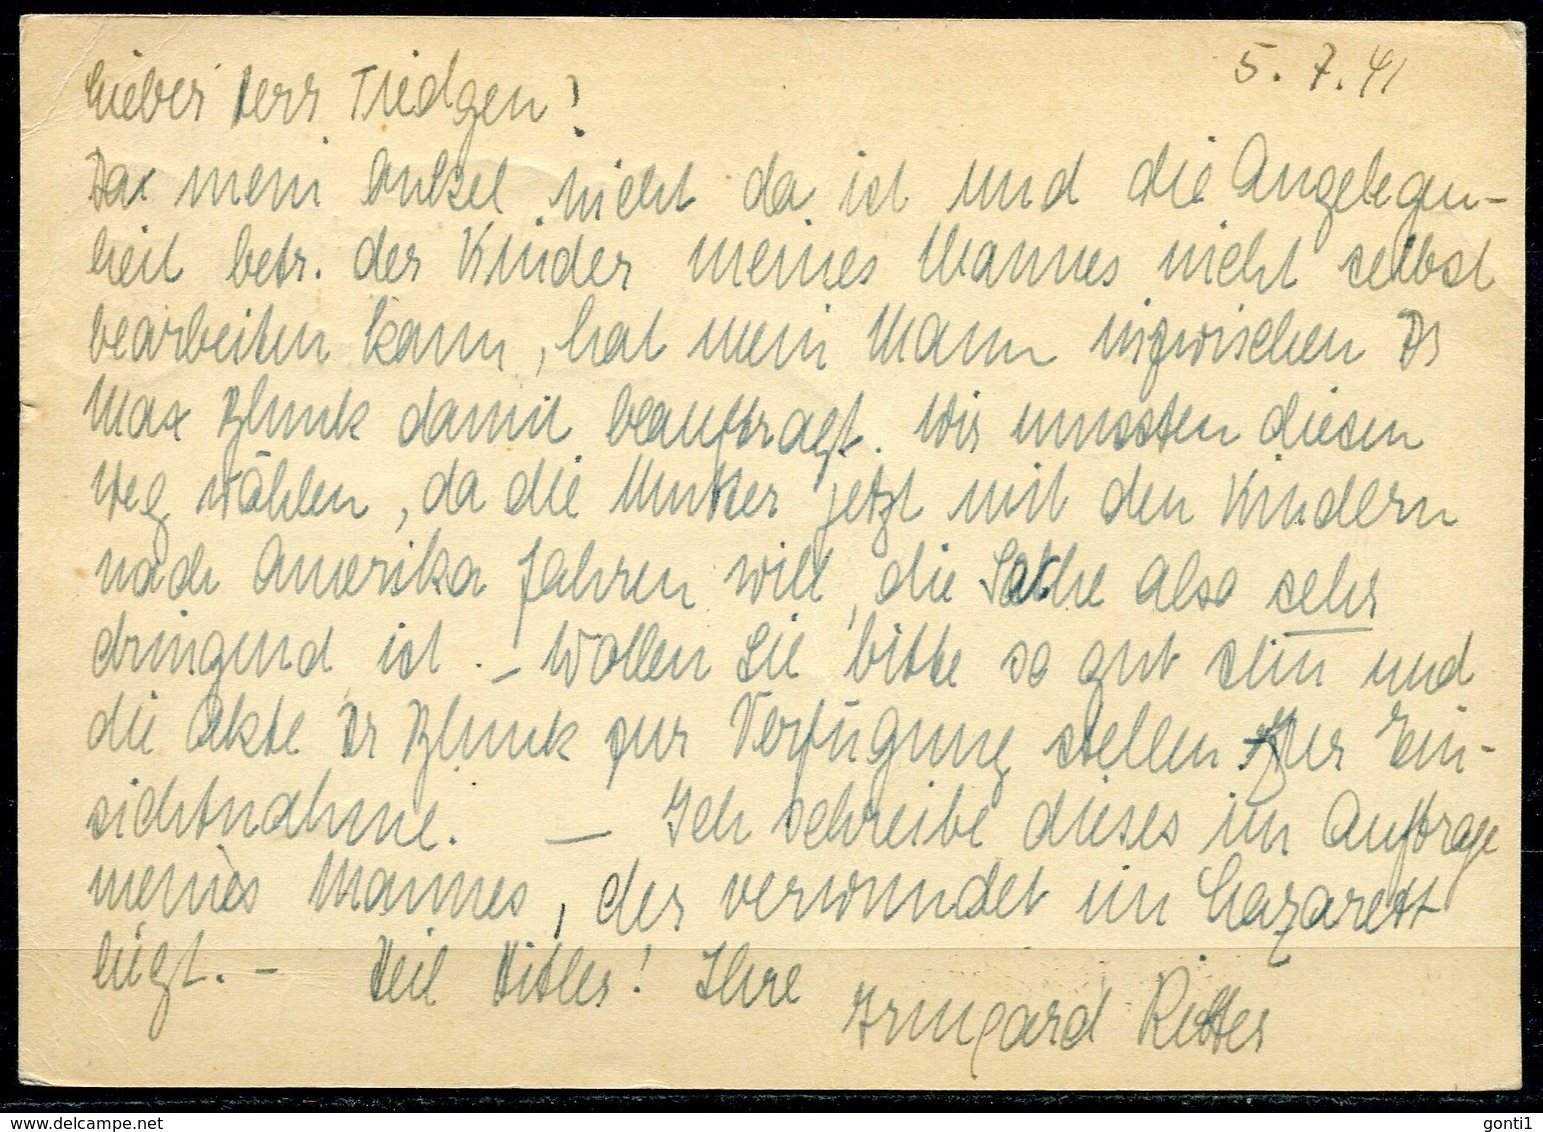 5.7.41
Lieber Herr Tiedgen!
Da mein Onkel nicht da ist und die Angelegen-
heit betr. der Kinder meines Mannes nicht selbst
bearbeiten kann, hat mein Mann inzwischen Dr
Max Blunk damit beauftragt. Wir mussten diesen
Weg wählen, da die Mutter jetzt mit den Kindern
nach Amerika fahren will, die Sache also sehr
dringend ist. – Wollen Sie bitte so gut sein und
die Akte Dr Blunk zur Verfügung stellen zur Ein-
sichtnahme. – Ich schreibe dieses im Auftrage
meines Mannes, der verwundet im Lazarett
liegt. – Heil Hitler! Ihre
Irmgard Ritter
gonti1
delcampe.net